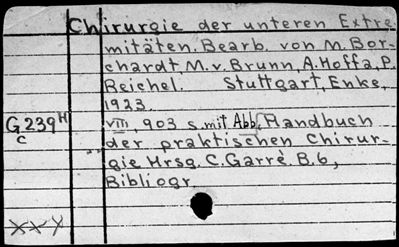 Chirurgie der unteren Extre
mitäten. Bearb. von M. Bor-
chardt, M. v. Brunn, A. Hoffa, P.
Reichel. Stuttgart, Enke,
1923.
G 239 H
c
VIII, 903 s. mit Abb. Handbuch
der praktischen Chirur-
gie Hrsg. C. Garrè. B. 6,
Bibliogr.
XXV